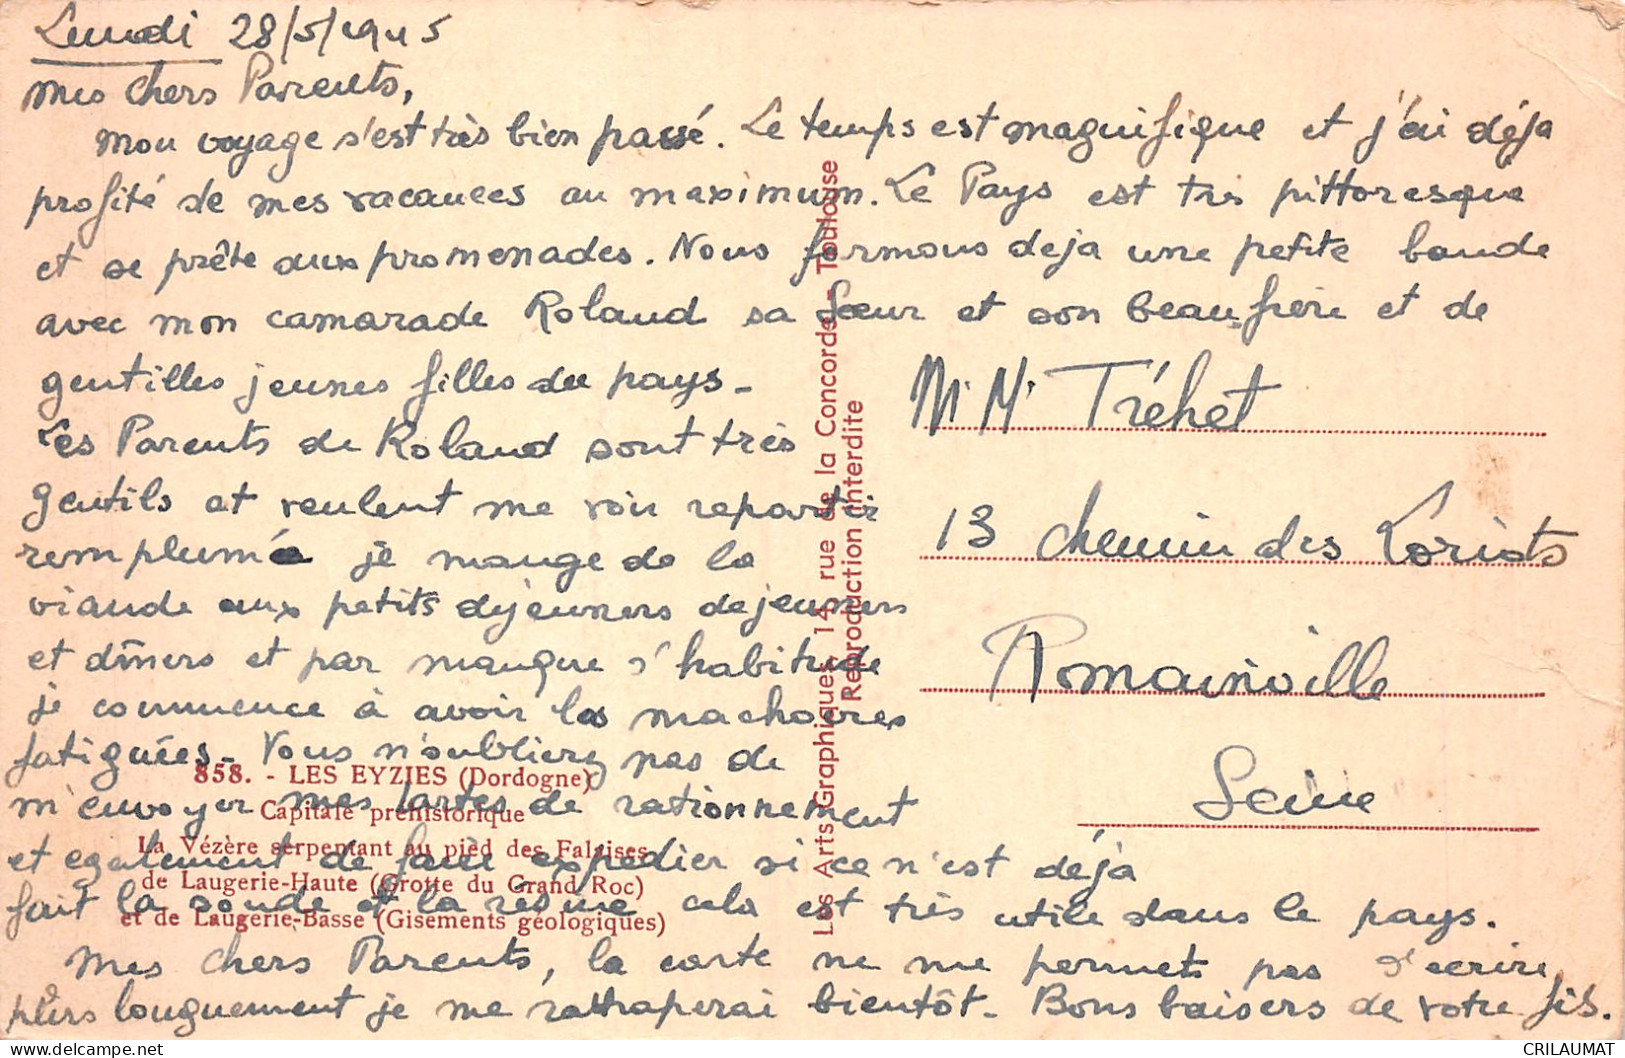 Lundi 28/5/1945
Mes chers Parents,
Mon voyage s'est très bien passé. Le temps est magnifique et j'ai déja
profité de mes vacances au maximum. Le Pays est très pittoresque
et se prête aux promenades. Nous formons deja une petite bande
avec mon camarade Roland sa Sœur et son beau frère et de
gentilles jeunes filles du pays -
Les Parents de Roland sont très
gentils et veulent me voir repartir
remplumé je mange de la
viande aux petits dejeuners dejeuners
et dîners et par manque d'habitude
je commence à avoir les machoires
fatiguées - Vous n'oublierez pas de
m'envoyer mes cartes de rationnement
et egalement de faire expedier si ce n'est déjà
fait la soude et la résine cela est très utile dans le pays.
Mes chers Parents, la carte ne me permet pas d'ecrire
plus longuement je me rattraperai bientôt - Bons baisers de votre fils.
M. Mr Tréhet
13 chemin des Loriots
Romainville
Seine
858. - LES EYZIES (Dordogne)
Capitale préhistorique
La Vézère serpentant au pied des Falaises
de Laugerie-Haute (Grotte du Grand Roc)
et de Laugerie-Basse (Gisements géologiques)
Les Arts Graphiques, 14, rue de la Concorde - Toulouse
Reproduction interdite
CRILAUMAT